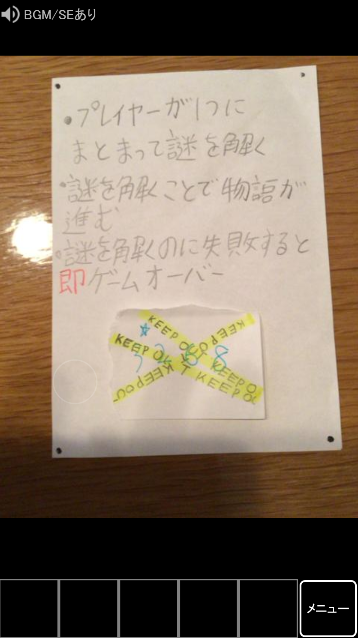 BGM/SEあり
・プレイヤーが1つに
まとまって謎を解く
・謎を解くことで物語が
進む
・謎を解くのに失敗すると
即ゲームオーバー
KEEP OUT KEEPO
KEEP O
T KEEPO
KEEPOUT
メニュー